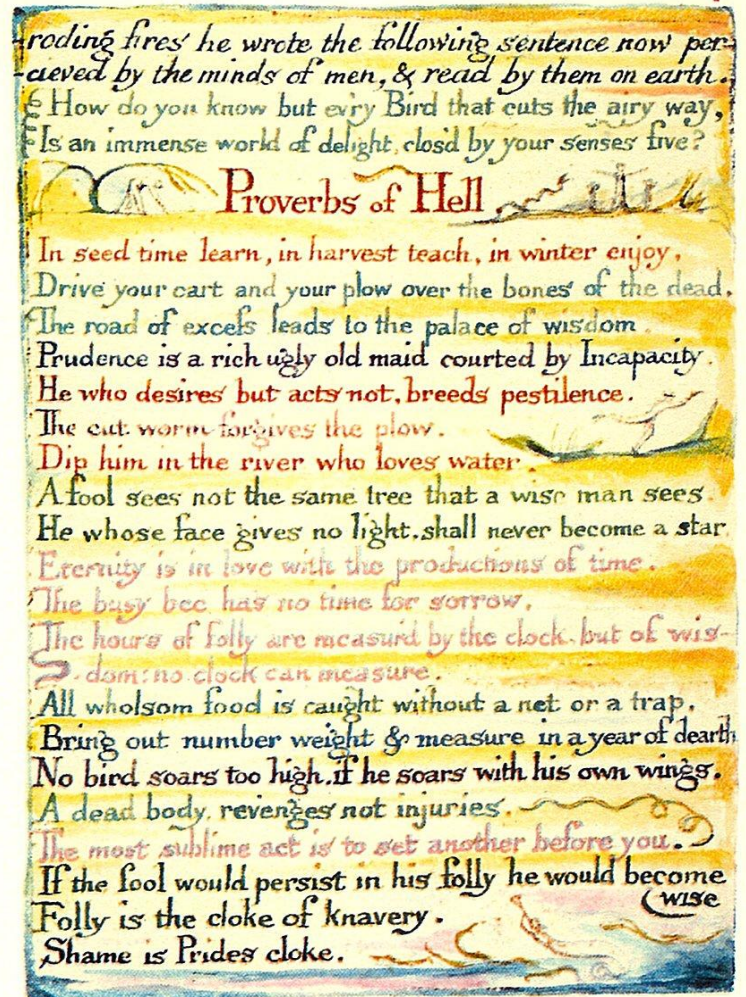 -roding fires he wrote the following sentence now per-
-cieved by the minds of men, & read by them on earth.
How do you know but ev'ry Bird that cuts the airy way,
Is an immense world of delight, clos'd by your senses five?
Proverbs of Hell
In seed time learn, in harvest teach, in winter enjoy.
Drive your cart and your plow over the bones of the dead.
The road of excess leads to the palace of wisdom.
Prudence is a rich ugly old maid courted by Incapacity.
He who desires but acts not, breeds pestilence.
The cut worm forgives the plow.
Dip him in the river who loves water.
A fool sees not the same tree that a wise man sees.
He whose face gives no light, shall never become a star.
Eternity is in love with the productions of time.
The busy bee has no time for sorrow.
The hours of folly are measur'd by the clock, but of wis-
-dom: no clock can measure.
All wholsom food is caught without a net or a trap.
Bring out number weight & measure in a year of dearth
No bird soars too high. if he soars with his own wings.
A dead body, revenges not injuries.
The most sublime act is to set another before you.
If the fool would persist in his folly he would become
(wise
Folly is the cloke of knavery.
Shame is Prides cloke.